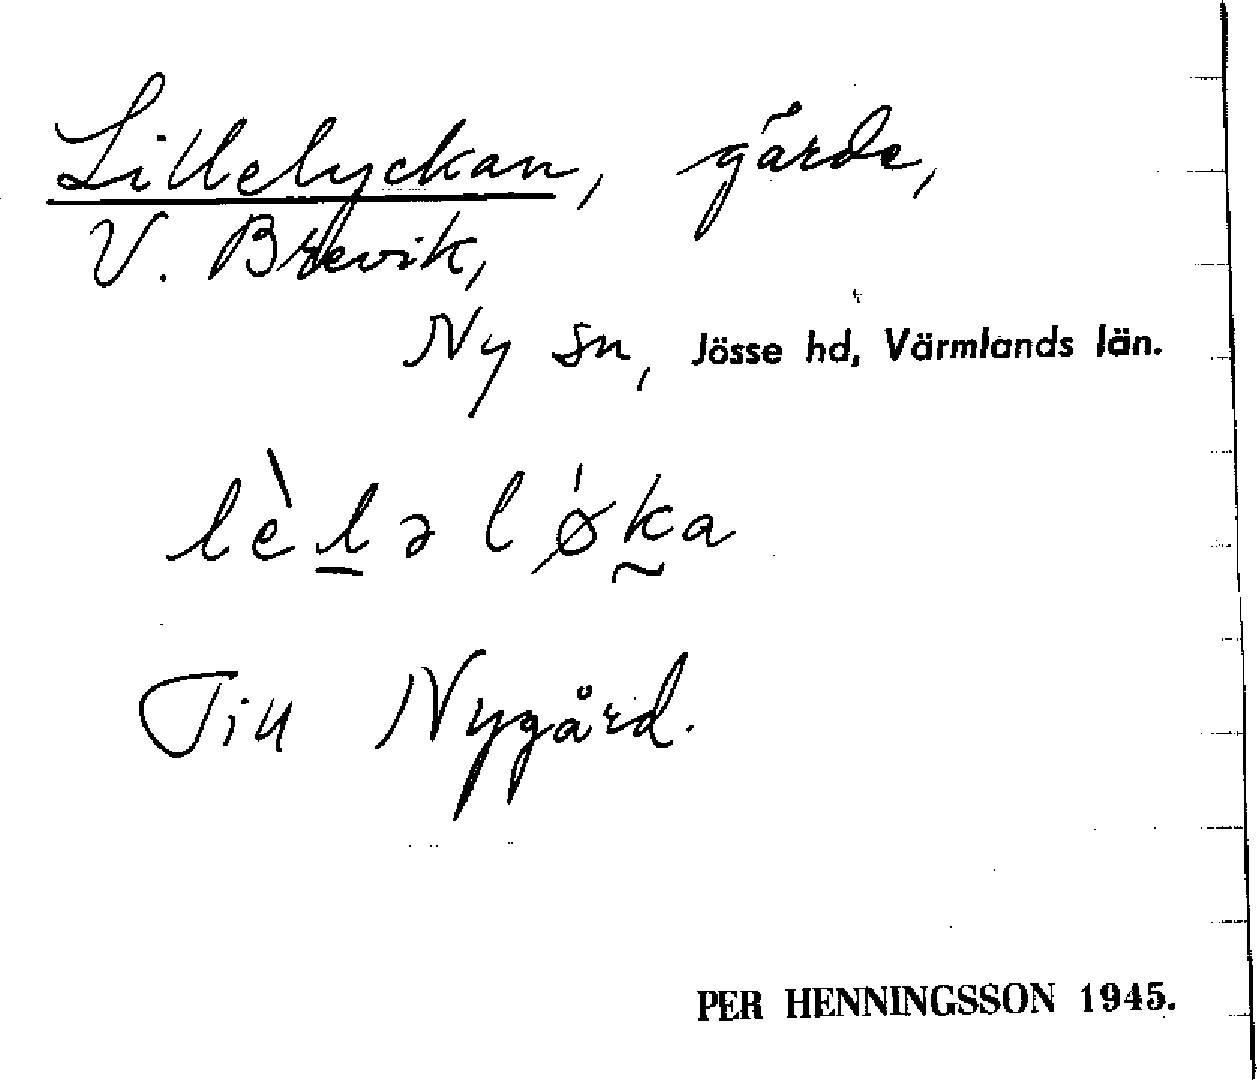 Lillelyckan, gärde,
V. Brevik,
Ny sn, Jösse hd, Värmlands län.
lèl̠ə lǿk̰a
Till Nygård.
PER HENNINGSSON 1945.